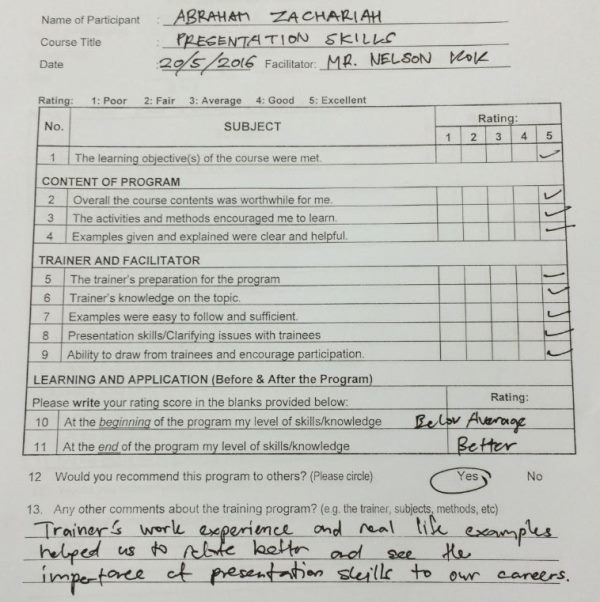 Name of Participant : ABRAHAM ZACHARIAH
Course Title : PRESENTATION SKILLS
Date : 20/5/2016 Facilitator: MR. NELSON KOK
Rating: 1: Poor 2: Fair 3: Average 4: Good 5: Excellent
No. SUBJECT Rating:
1 2 3 4 5
1 The learning objective(s) of the course were met. ✓
CONTENT OF PROGRAM
2 Overall the course contents was worthwhile for me. ✓
3 The activities and methods encouraged me to learn. ✓
4 Examples given and explained were clear and helpful. ✓
TRAINER AND FACILITATOR
5 The trainer's preparation for the program ✓
6 Trainer's knowledge on the topic. ✓
7 Examples were easy to follow and sufficient. ✓
8 Presentation skills/Clarifying issues with trainees ✓
9 Ability to draw from trainees and encourage participation. ✓
LEARNING AND APPLICATION (Before & After the Program)
Please write your rating score in the blanks provided below: Rating:
10 At the beginning of the program my level of skills/knowledge Below Average
11 At the end of the program my level of skills/knowledge Better
12 Would you recommend this program to others? (Please circle) Yes No
13. Any other comments about the training program? (e.g. the trainer, subjects, methods, etc)
Trainer's work experience and real life examples
helped us to relate better and see the
importance of presentation skills to our careers.